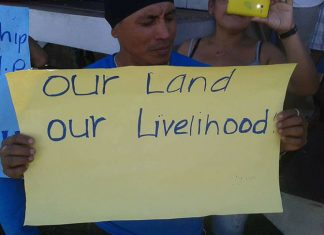 ship
our Land
our Livelihood.